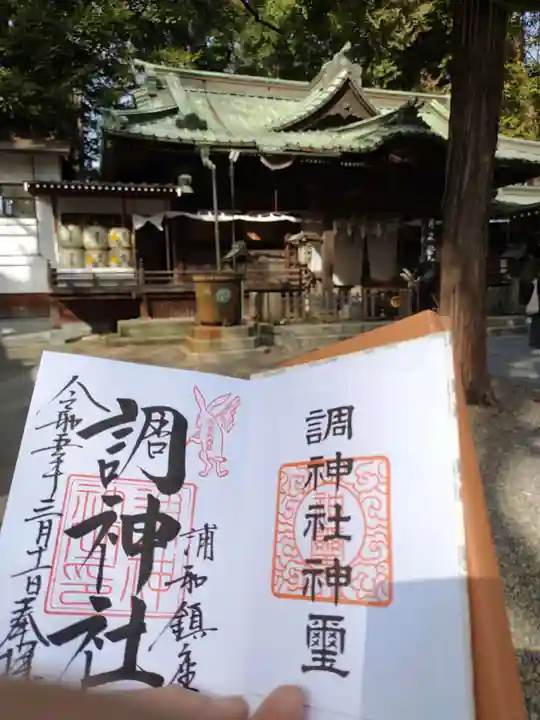 調神社神璽
浦和鎮座
調神社
令和五年三月十二日奉拝